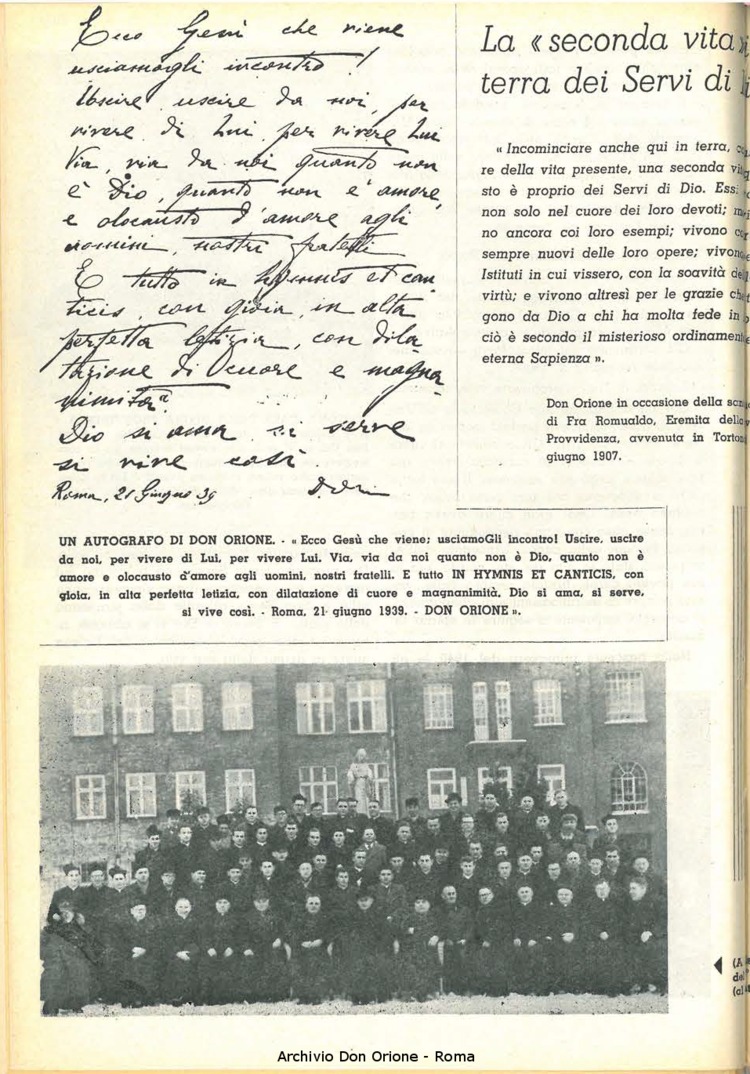 Ecco Gesù che viene
usciamogli incontro!
Uscire, uscire da noi, per
vivere di Lui, per vivere Lui
Via, via da noi quanto non
è Dio, quanto non è amore
e olocausto d'amore agli
uomini, nostri fratelli
E tutto in hymnis et can
ticis, con gioia, in alta
perfetta letizia, con dila
tazione di cuore e magna-
nimità.
Dio si ama si serve
si vive così
Roma, 21 Giugno 39
La « seconda vita »
terra dei Servi di
« Incominciare anche qui in terra,
re della vita presente, una seconda
sto è proprio dei Servi di Dio. Essi
non solo nel cuore dei loro devoti;
no ancora coi loro esempi; vivono
sempre nuovi delle loro opere;
Istituti in cui vissero, con la soavità
virtù; e vivono altresì per le grazie
gono da Dio a chi ha molta fede in
ciò è secondo il misterioso
eterna Sapienza ».
Don Orione in occasione della
di Fra Romualdo, Eremita
Provvidenza, avvenuta in
giugno 1907.
UN AUTOGRAFO DI DON ORIONE. - « Ecco Gesù che viene; usciamoGli incontro! Uscire, uscire
da noi, per vivere di Lui, per vivere Lui. Via, via da noi quanto non è Dio, quanto non è
amore e olocausto d'amore agli uomini, nostri fratelli. E tutto IN HYMNIS ET CANTICIS, con
gioia, in alta perfetta letizia, con dilatazione di cuore e magnanimità. Dio si ama, si serve,
si vive così. - Roma, 21 giugno 1939. - DON ORIONE ».
(A
Archivio Don Orione - Roma